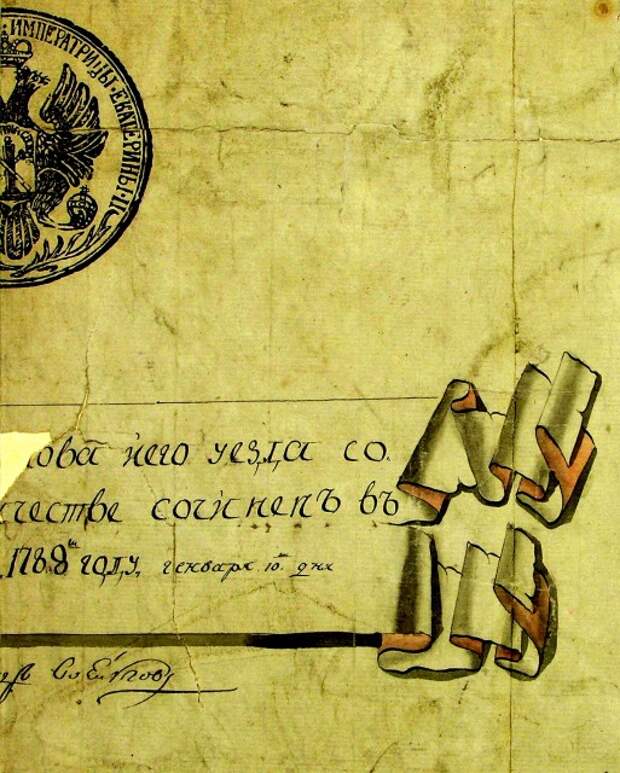 ИМПЕРАТРИЦЫ·ЕКАТЕРИНЫ·II·
ова него уезда со.
чествѣ сочиненъ въ
1788 году, генваря 10 дня